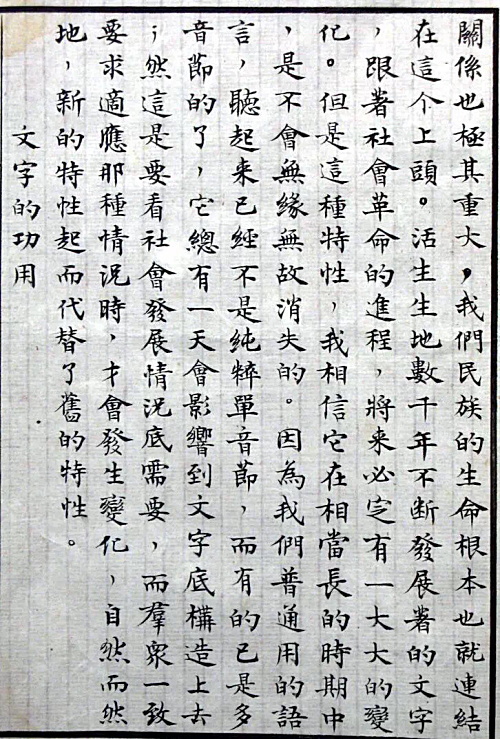 關係也極其重大，我們民族的生命根本也就連結
在這个上頭。活生生地數千年不断發展著的文字
，跟著社會革命的進程，將来必定有一大大的變
化。但是這種特性，我相信它在相當長的時期中
，是不會無緣無故消失的。因為我們普通用的語
言，聽起来已經不是純粹單音節，而有的已是多
音節的了，它總有一天會影響到文字底構造上去
；然這是要看社會發展情況底需要，而羣衆一致
要求適應那種情況時，才會發生變化，自然而然
地，新的特性起而代替了舊的特性。
文字的功用